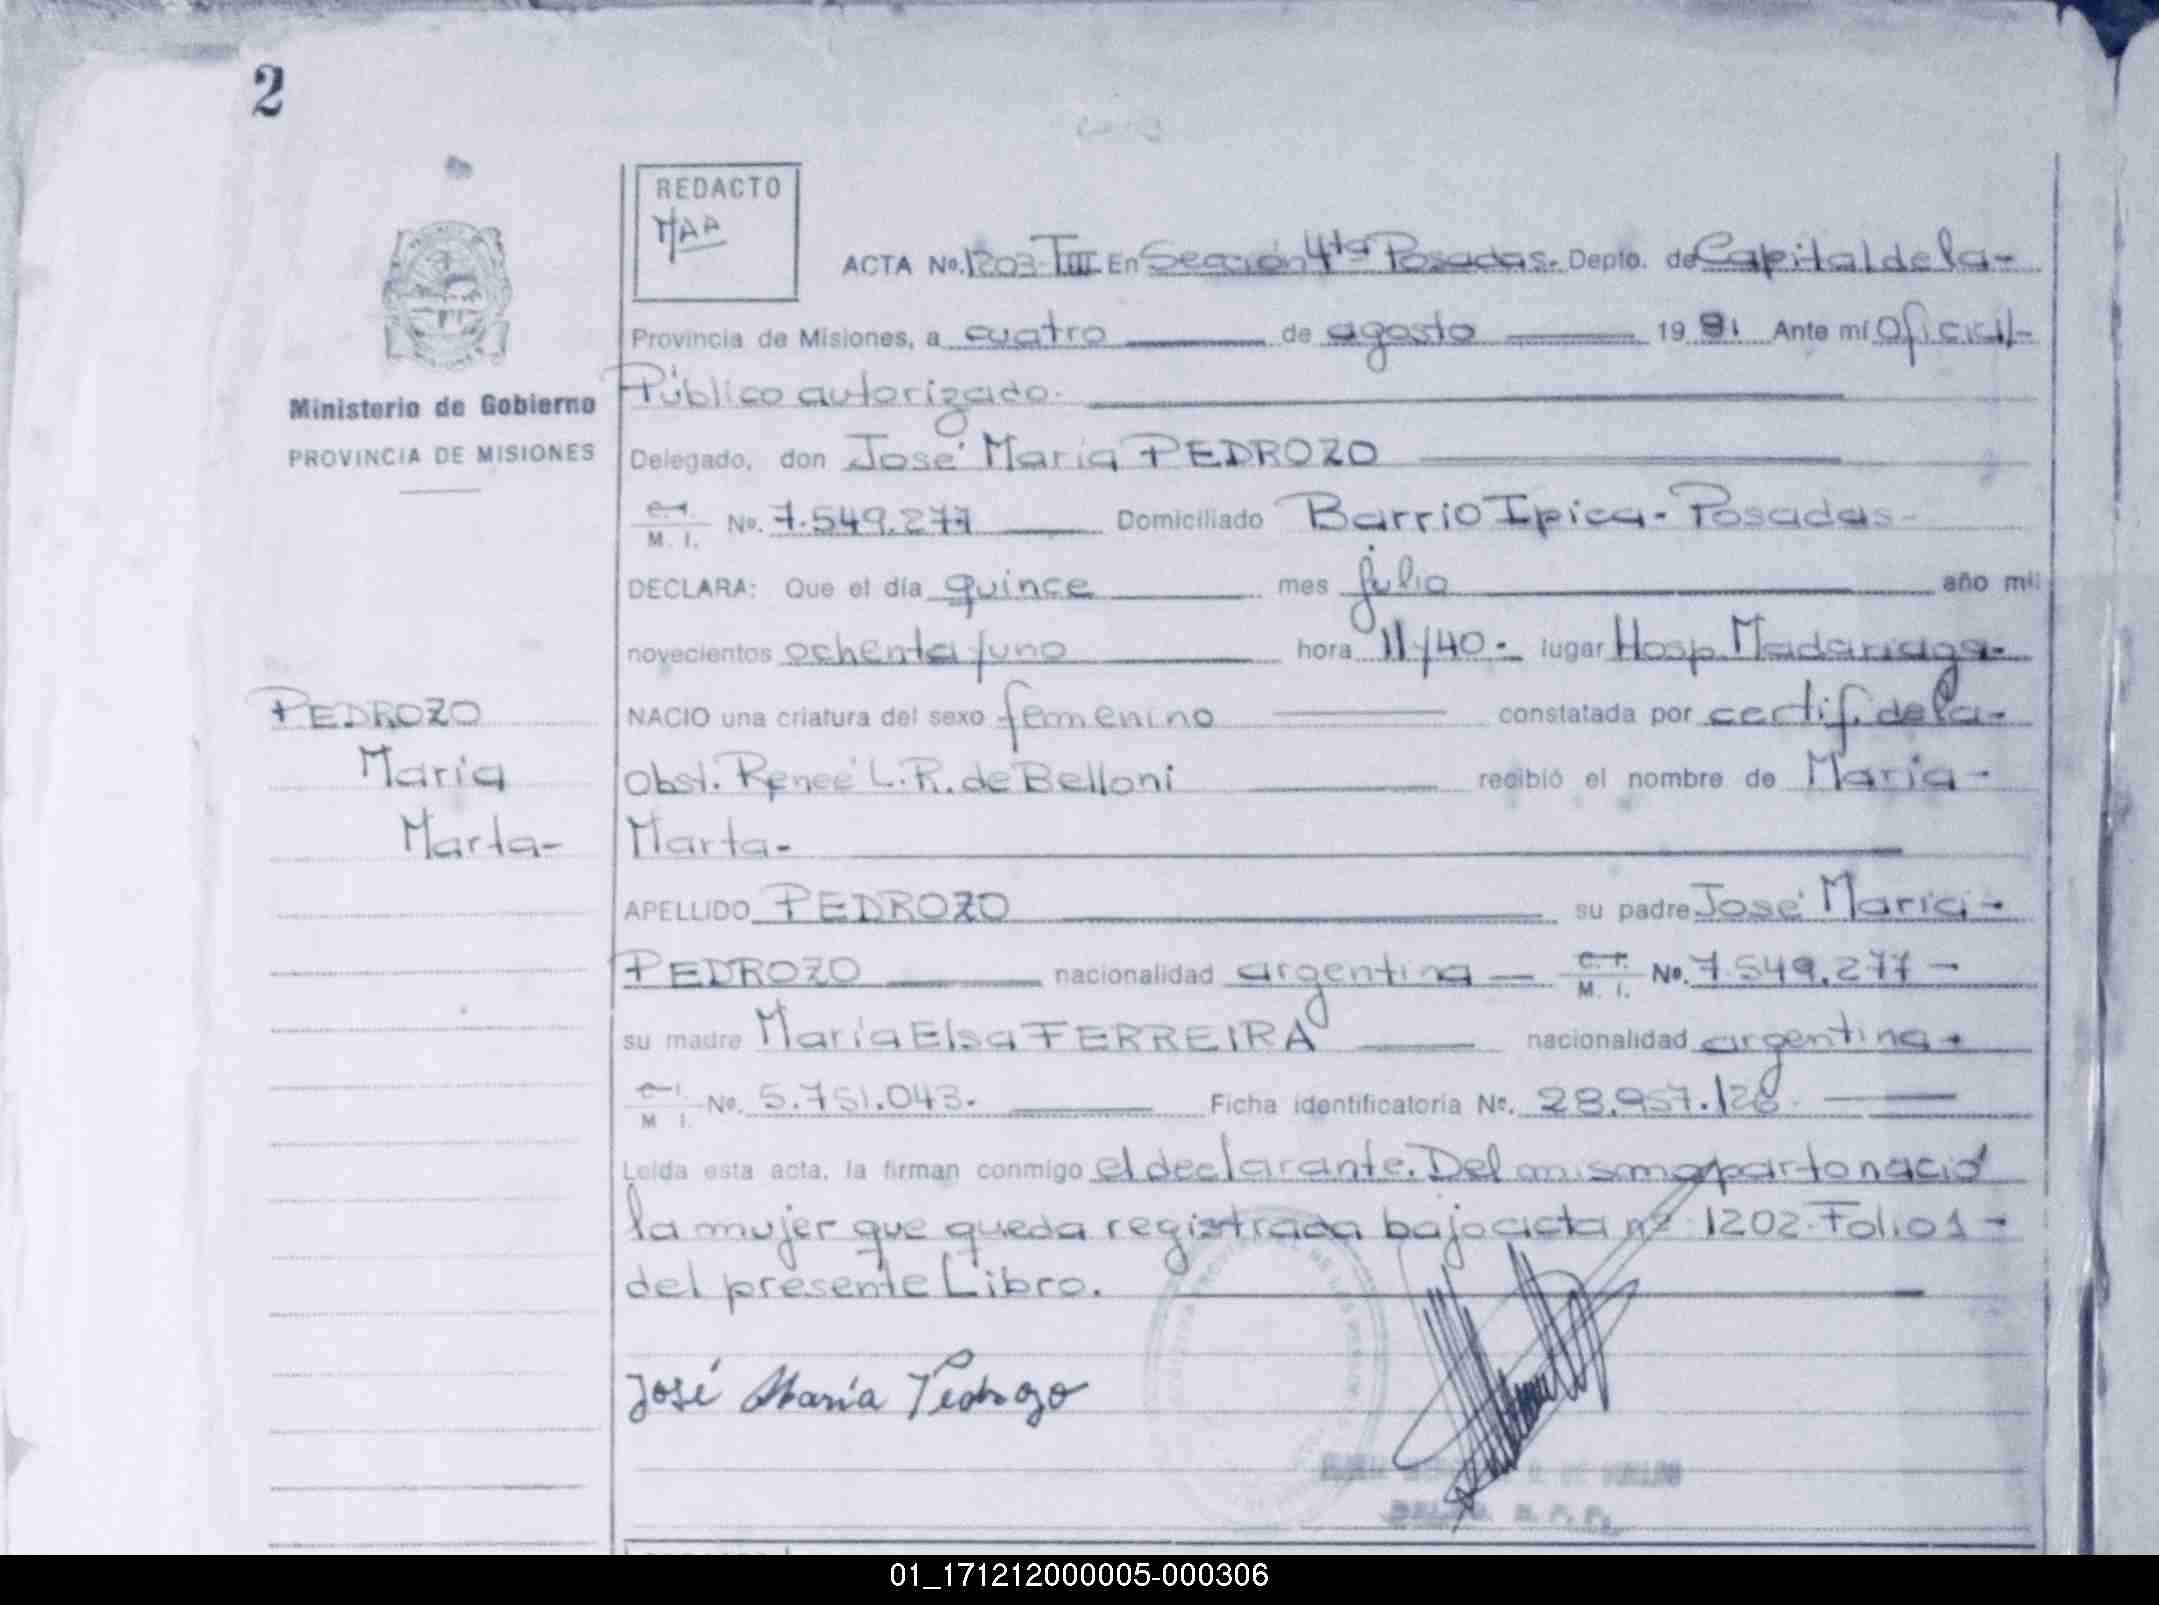 2
REDACTO
MAA
ACTA No. 1203 TIII En Sección 4ta Posadas. Depto. de Capital de la-
Provincia de Misiones, a cuatro de agosto 1981 Ante mí Oficial-
Ministerio de Gobierno
Público autorizado.
PROVINCIA DE MISIONES
Delegado, don José María PEDROZO
C.I. M. I. No. 7.549.277 Domiciliado Barrio Ipica - Posadas-
DECLARA: Que el día quince mes julio año mil
novecientos ochenta/uno hora 11/40. lugar Hosp. Madariaga-
PEDROZO
María
Marta-
NACIO una criatura del sexo femenino constatada por certif. de la-
Obst. Reneé L. R. de Belloni recibió el nombre de María-
Marta-
APELLIDO PEDROZO su padre José María-
PEDROZO nacionalidad argentina C.I. M. I. No. 7.549.277-
su madre María Elsa FERREIRA nacionalidad argentina-
C.I. M I. No. 5.751.043. Ficha identificatoria No. 28.957.128.
Leída esta acta, la firman conmigo el declarante. Del mismo parto nació
la mujer que queda registrada bajo acta nº 1202. Folio 1-
del presente Libro.
José María Pedrozo
01_171212000005-000306